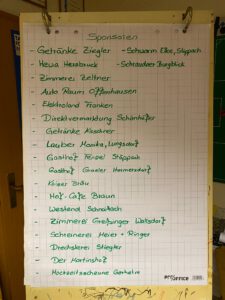 Sponsoren
- Getränke Ziegler - Schwarm Elke, Stöppach
- Hewa Hersbruck - Schraudner Burgblick
- Zimmerei Zeltner
- Auto Raum Offenhausen
- Elektroland Franken
- Direktvermarktung Schönhöfer
- Getränke Kaschner
- Lauber Monika, Lungsdorf
- Gasthof Ferzel Stöppach
- Gasthof Grauler Heimersdorf
- Kaiser Bräu
- Hof-Cafe Braun
- Westend Schnaittach
- Zimmerei Waltsdorf
- Schreinerei Meier + Ringer
- Drechslerei Stiegler
- Der Martinshof
Hochzeitsscheune
OFFICE